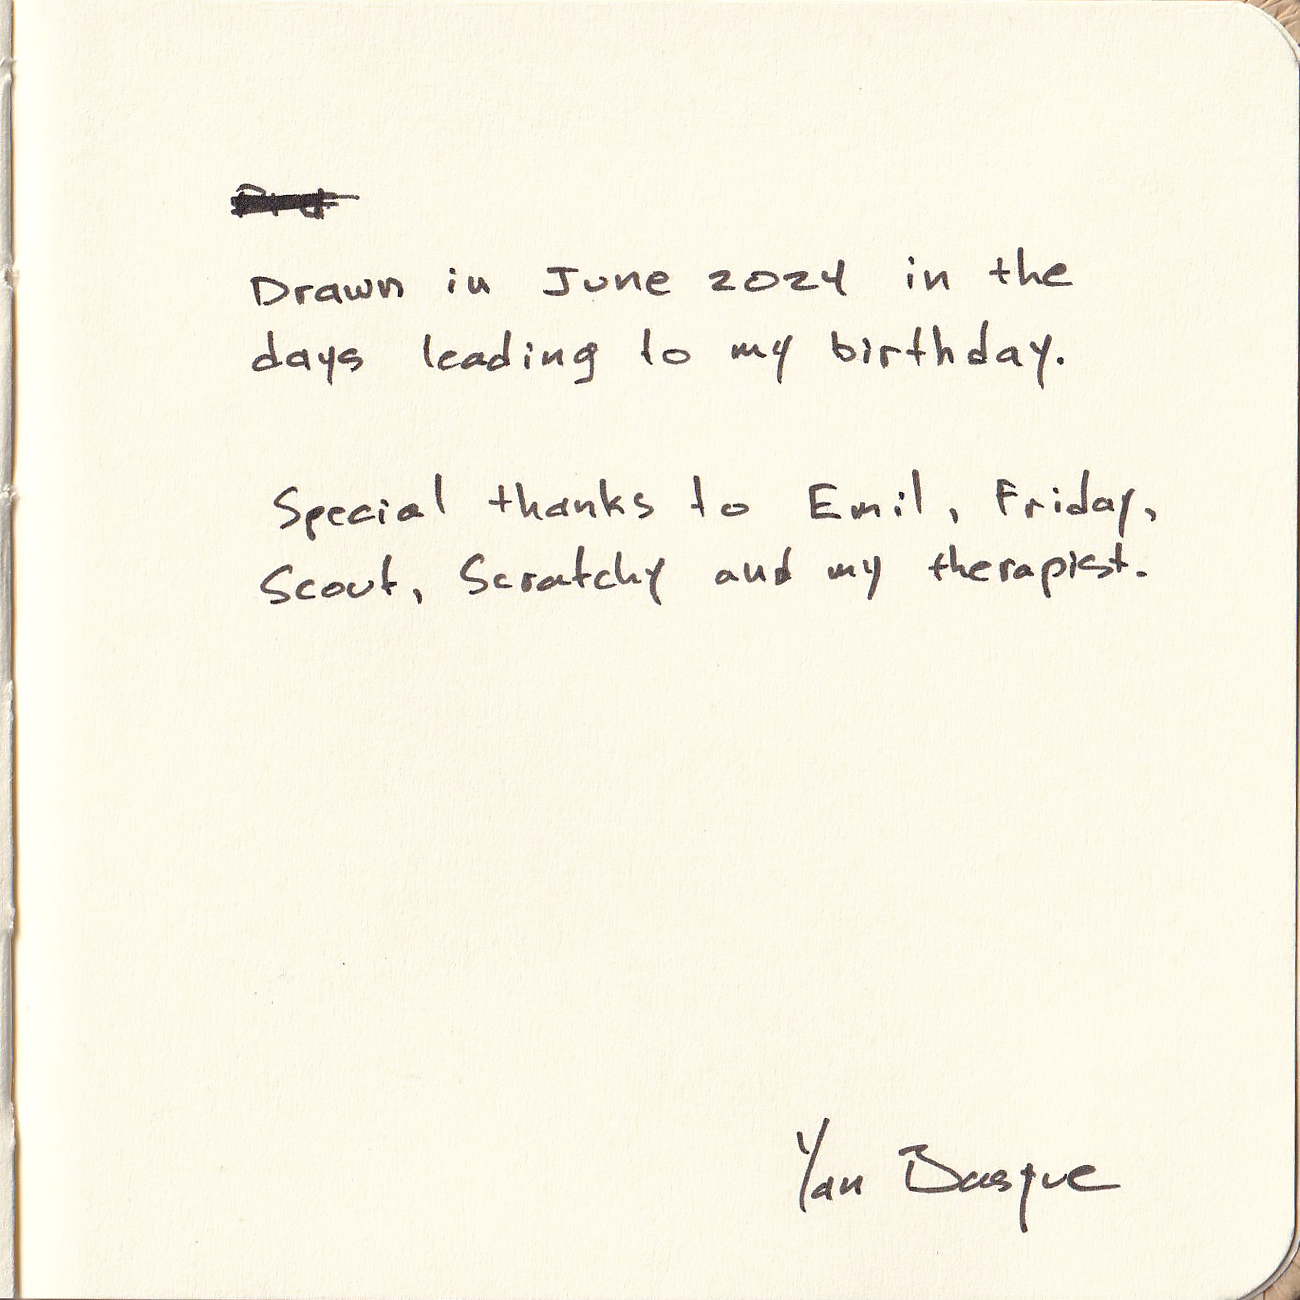 Drawn in June 2024 in the
days leading to my birthday.
Special thanks to Emil, Friday,
Scout, Scratchy and my therapist.
Yan Basque